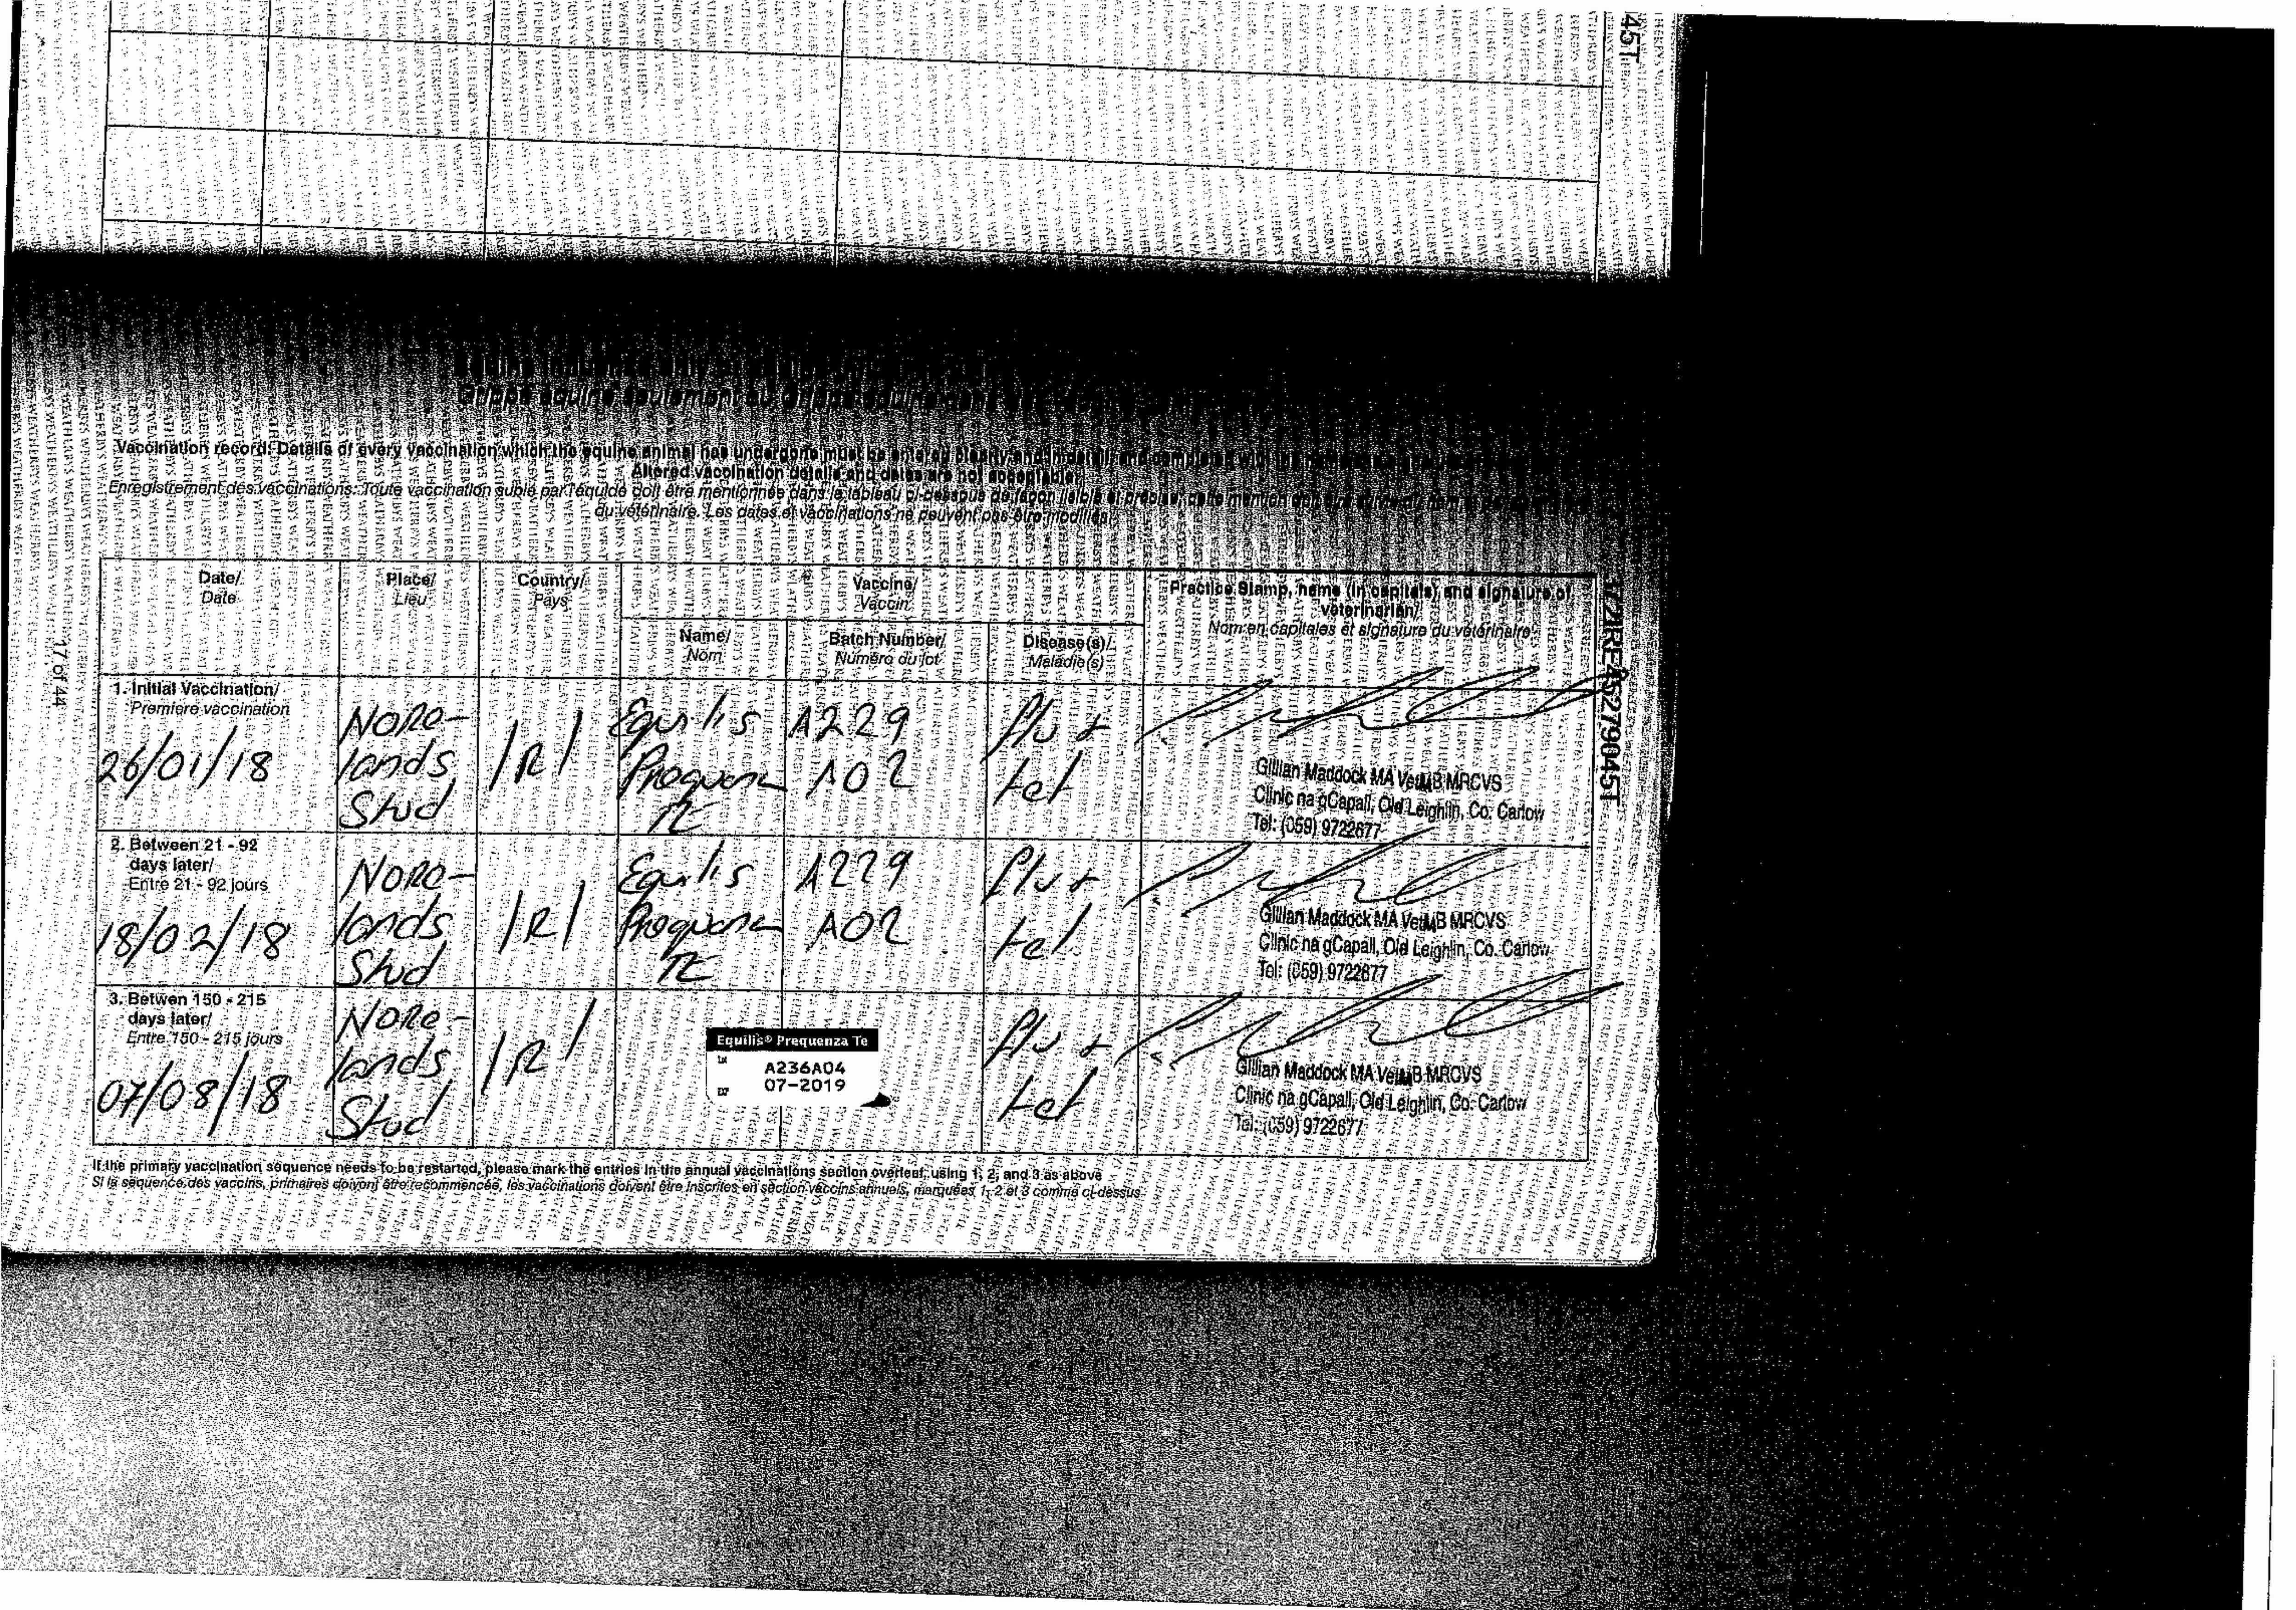 45T
Grippe équine seulement ou Grippe équine dans
Vaccination record: Details of every vaccination which the equine animal has undergone must be entered clearly and in detail and completed with the
Altered vaccination details and dates are not acceptable.
Enregistrement des vaccinations: Toute vaccination subie par l'équidé doit être mentionnée dans le tableau ci-dessous de façon lisible et précise,
du vétérinaire. Les dates et vaccinations ne peuvent pas être modifiées.
Date/ Date
Place/ Lieu
Country/ Pays
Vaccine/ Vaccin
Practice Stamp, name (in capitals) and signature of veterinarian/
Nom en capitales et signature du vétérinaire
Name/ Nom
Batch Number/ Numéro du lot
Disease(s)/ Maladie(s)
1. Initial Vaccination/
Première vaccination
26/01/18
Nore-
lands
Stud
IRI
Equilis
Prequenza
TE
A229
A02
flu +
tet
Gillian Maddock MA VetMB MRCVS
Clinic na gCapall, Old Leighlin, Co. Carlow
Tel: (059) 9722677
2. Between 21 - 92
days later/
Entre 21 - 92 jours
18/02/18
Nore-
lands
Stud
IRI
Equilis
Prequenza
TE
A229
A02
flu +
tet
Gillian Maddock MA VetMB MRCVS
Clinic na gCapall, Old Leighlin, Co. Carlow
Tel: (059) 9722677
3. Betwen 150 - 215
days later/
Entre 150 - 215 jours
07/08/18
Nore-
lands
Stud
IRI
Equilis® Prequenza Te
A236A04
07-2019
flu +
tet
Gillian Maddock MA VetMB MRCVS
Clinic na gCapall, Old Leighlin, Co. Carlow
Tel: (059) 9722677
If the primary vaccination sequence needs to be restarted, please mark the entries in the annual vaccinations section overleaf, using 1, 2, and 3 as above
Si la séquence des vaccins, primaires doivent être recommencée, les vaccinations doivent être inscrites en section vaccins annuels, marquées 1, 2 et 3 comme ci-dessus
17 of 44